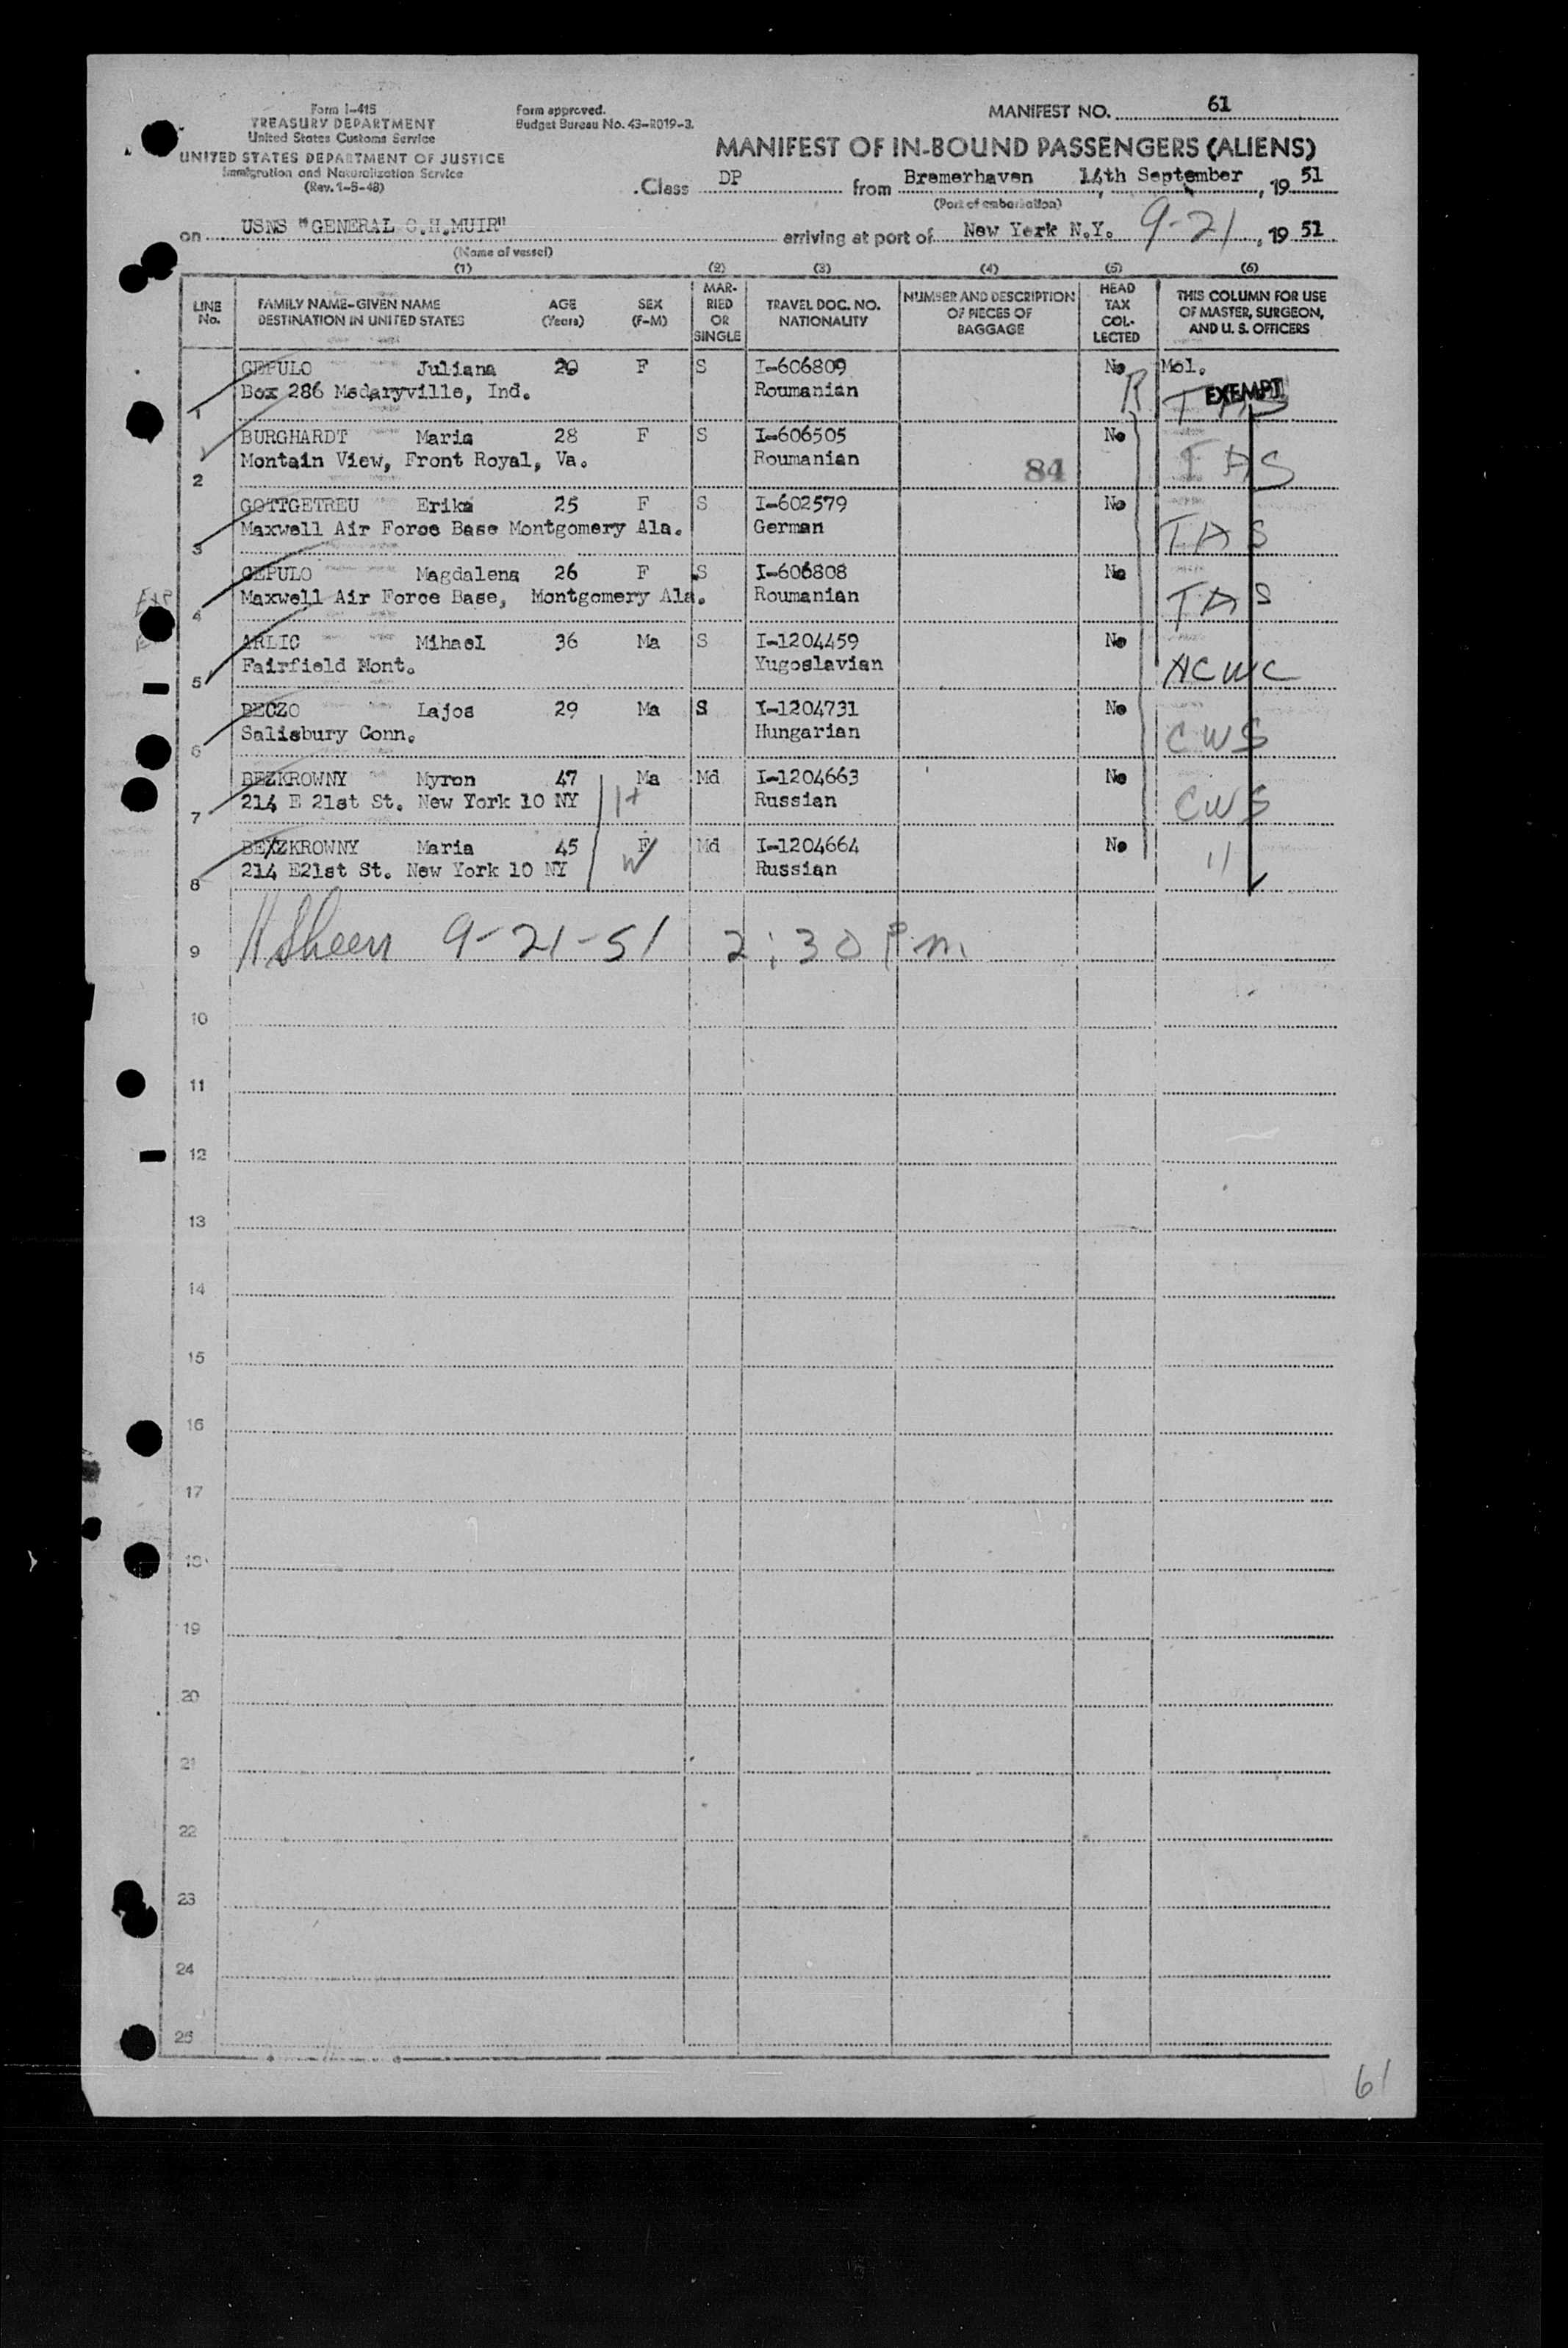 Form I-415
TREASURY DEPARTMENT
United States Customs Service
UNITED STATES DEPARTMENT OF JUSTICE
Immigration and Naturalization Service
(Rev. 1-5-48)
Form approved.
Budget Bureau No. 43-R019-3.
MANIFEST NO. 61
MANIFEST OF IN-BOUND PASSENGERS (ALIENS)
Class DP from Bremerhaven 14th September, 19 51
(Port of embarkation)
on USNS "GENERAL C.H.MUIR" arriving at port of New York N.Y. 9-21, 19 51
(Name of vessel)
(1) (2) (3) (4) (5) (6)
LINE No. FAMILY NAME-GIVEN NAME DESTINATION IN UNITED STATES AGE (Years) SEX (F-M) MARRIED OR SINGLE TRAVEL DOC. NO. NATIONALITY NUMBER AND DESCRIPTION OF PIECES OF BAGGAGE HEAD TAX COLLECTED THIS COLUMN FOR USE OF MASTER, SURGEON, AND U. S. OFFICERS
CEPULO Juliana 20 F S I-606809 No Mol.
1 Box 286 Medaryville, Ind. Roumanian R EXEMPT TAS
BURGHARDT Maria 28 F S I-606505 No
2 Montain View, Front Royal, Va. Roumanian 84 TAS
GOTTGETREU Erika 25 F S I-602579 No
3 Maxwell Air Force Base Montgomery Ala. German TAS
CEPULO Magdalena 26 F S I-606808 No
4 Maxwell Air Force Base, Montgomery Ala. Roumanian TAS
ARLIC Mihael 36 Ma S I-1204459 No
5 Fairfield Mont. Yugoslavian NCWC
BECZO Lajos 29 Ma S I-1204731 No
6 Salisbury Conn. Hungarian CWS
BEZKROWNY Myron 47 Ma Md I-1204663 No
7 214 E 21st St. New York 10 NY H Russian CWS
BEZKROWNY Maria 45 F Md I-1204664 No
8 214 E21st St. New York 10 NY W Russian "
9 H Sheen 9-21-51 2:30 Pm
10
11
12
13
14
15
16
17
18
19
20
21
22
23
24
25
61